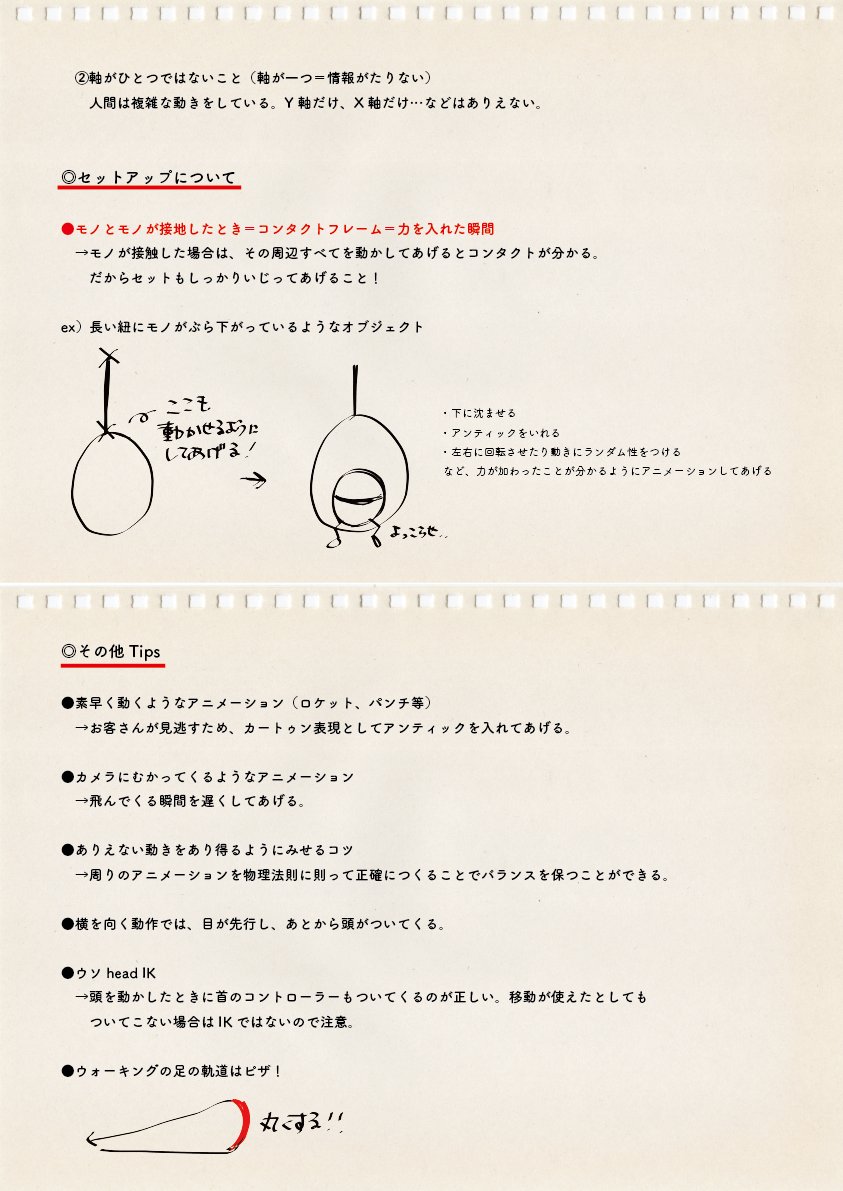 ②軸がひとつではないこと（軸が一つ＝情報がたりない）
人間は複雑な動きをしている。Y軸だけ、X軸だけ…などはありえない。
◎セットアップについて
●モノとモノが接地したとき＝コンタクトフレーム＝力を入れた瞬間
→モノが接触した場合は、その周辺すべてを動かしてあげるとコンタクトが分かる。
だからセットもしっかりいじってあげること！
ex）長い紐にモノがぶら下がっているようなオブジェクト
ここも
動かせるように
してあげる！
・下に沈ませる
・アンティックをいれる
・左右に回転させたり動きにランダム性をつける
など、力が加わったことが分かるようにアニメーションしてあげる
よっこらせ..
◎その他 Tips
●素早く動くようなアニメーション（ロケット、パンチ等）
→お客さんが見逃すため、カートゥン表現としてアンティックを入れてあげる。
●カメラにむかってくるようなアニメーション
→飛んでくる瞬間を遅くしてあげる。
●ありえない動きをあり得るようにみせるコツ
→周りのアニメーションを物理法則に則って正確につくることでバランスを保つことができる。
●横を向く動作では、目が先行し、あとから頭がついてくる。
●ウソ head IK
→頭を動かしたときに首のコントローラーもついてくるのが正しい。移動が使えたとしても
ついてこない場合は IK ではないので注意。
●ウォーキングの足の軌道はピザ！
丸くする！！